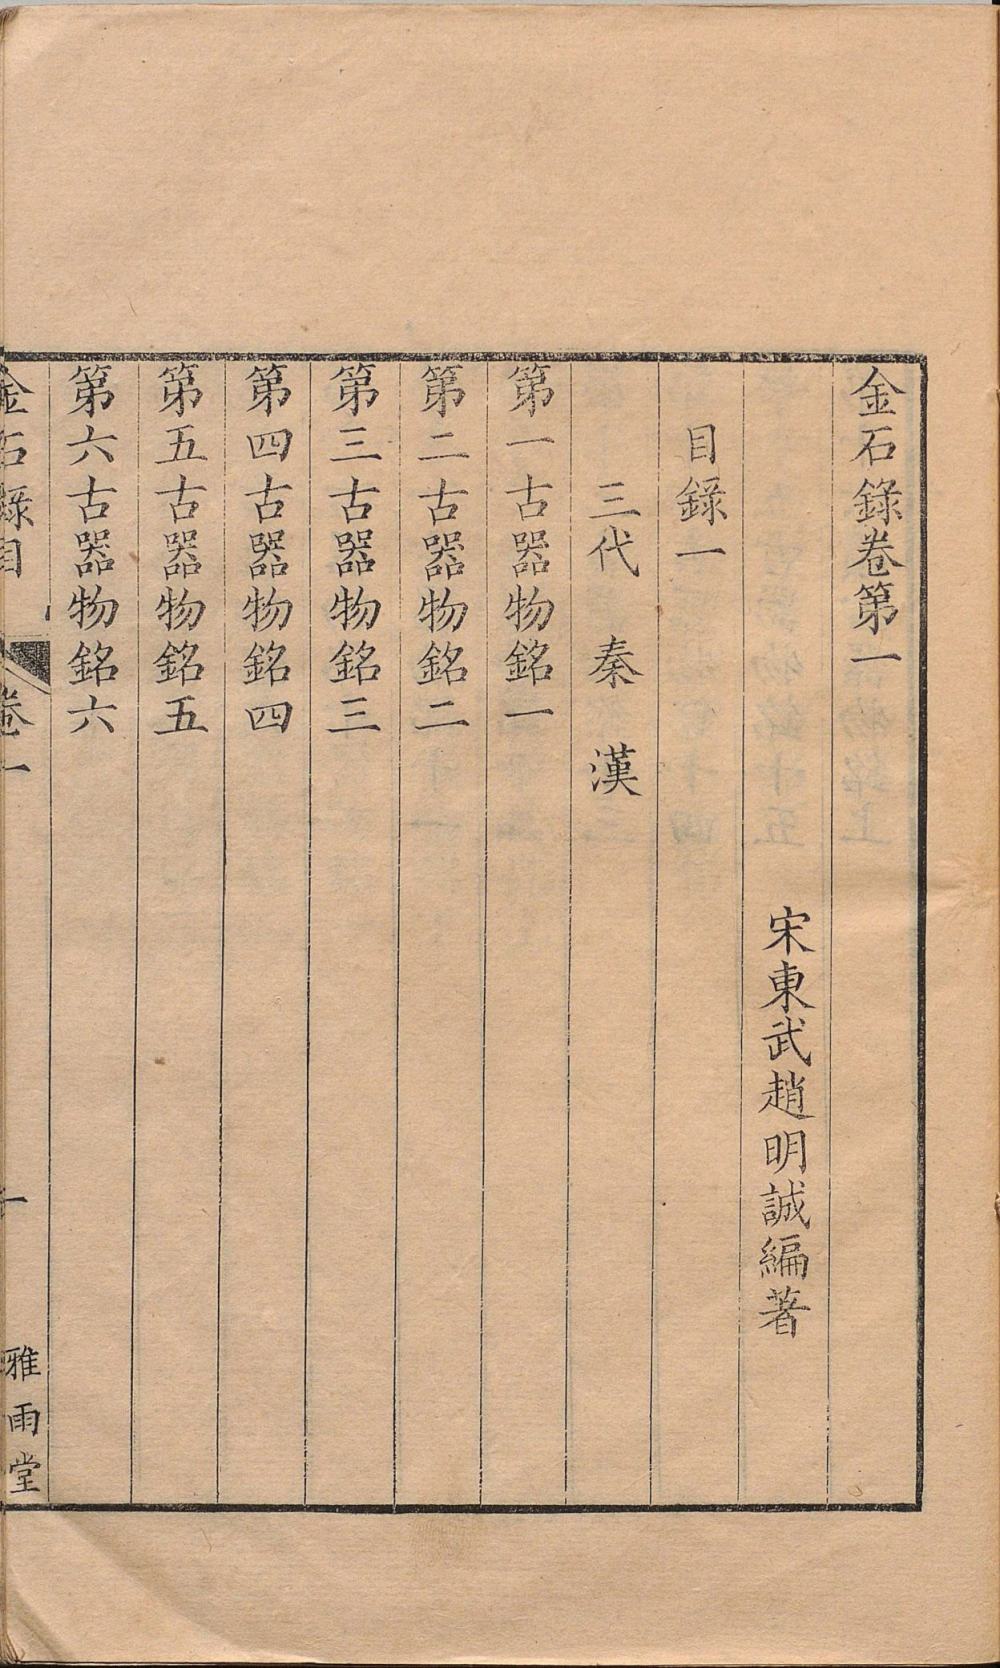 金石錄卷第一
宋東武趙明誠編著
目錄一
三代　秦　漢
第一古器物銘一
第二古器物銘二
第三古器物銘三
第四古器物銘四
第五古器物銘五
第六古器物銘六
金石錄目　卷一　一　雅雨堂